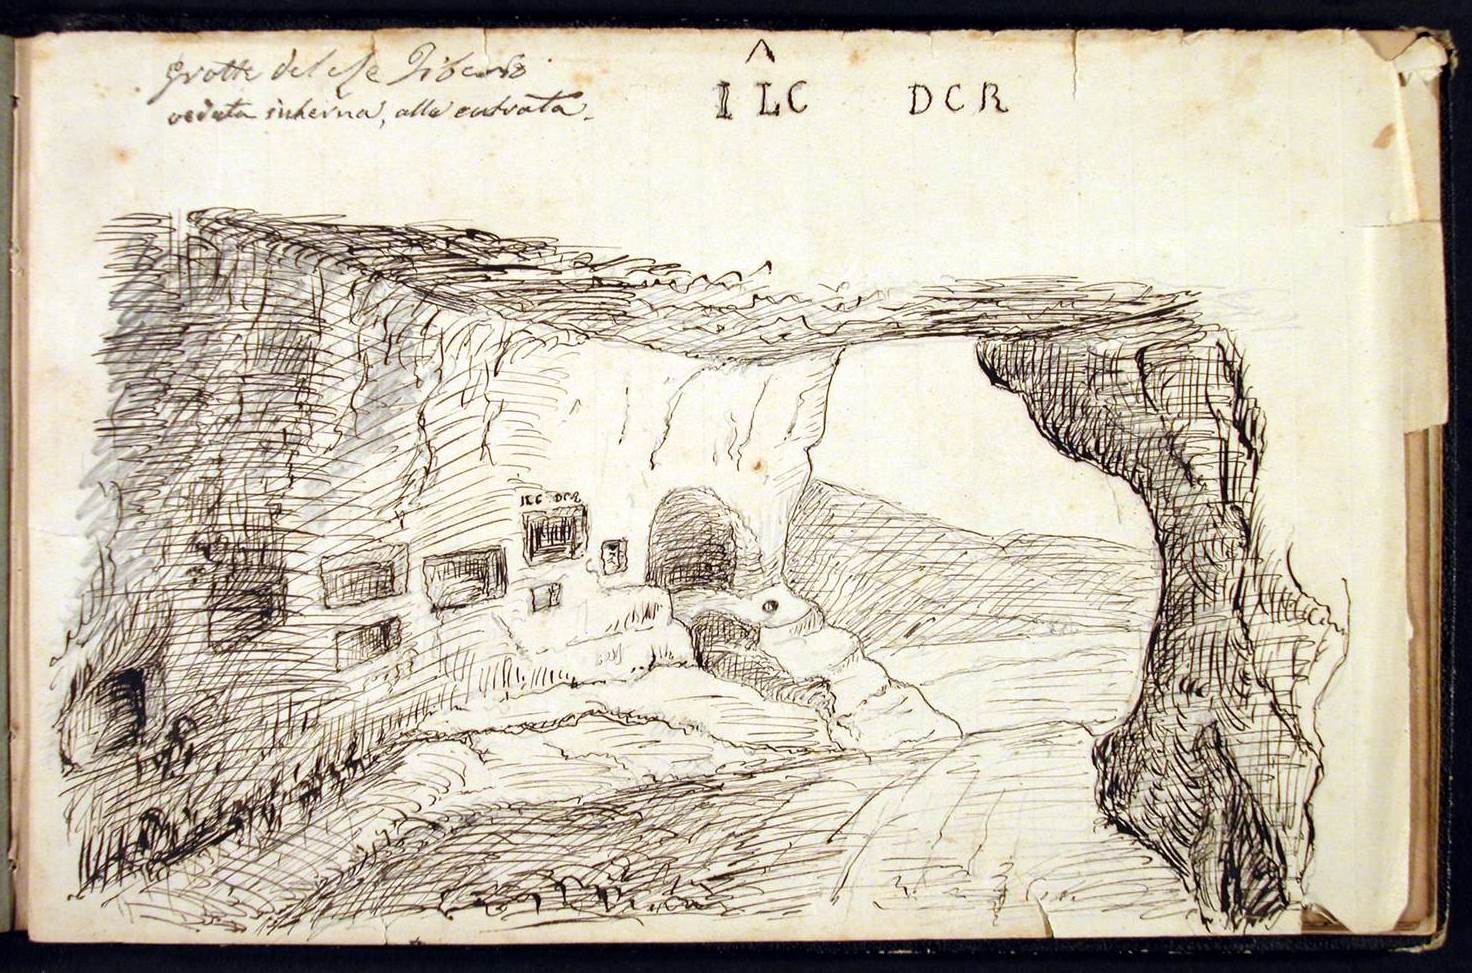 Grotte del Re Tiberio
veduta interna, alla entrata.
Λ
ILC DCR
ILC DCR